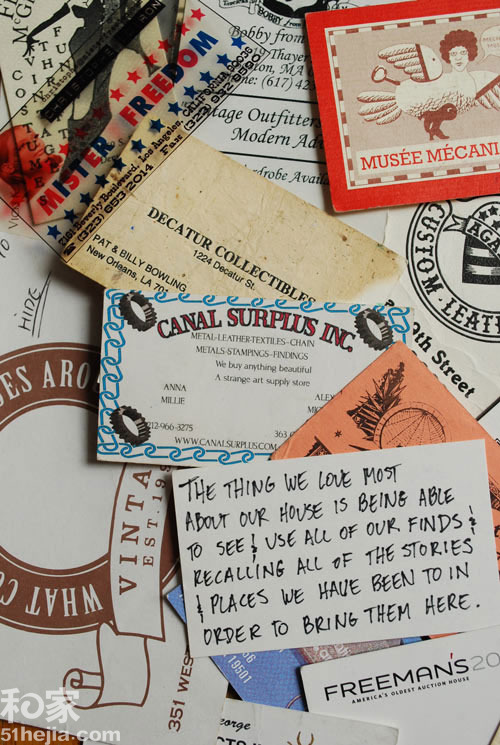 Bobby from
Thayer
Vintage Outfitters
Modern
Wardrobe Availa
MUSÉE MÉCANI
MISTER FREEDOM
Beverly Boulevard, Los Angeles,
CALIFORNIA
DECATUR COLLECTIBLES
1224 Decatur St.
PAT & BILLY BOWLING
New Orleans, LA 701
CUSTOM
LEATHER
th Street
HIDE
CANAL SURPLUS INC.
METAL-LEATHER-TEXTILES-CHAIN
METALS-STAMPINGS-FINDINGS
We buy anything beautiful
A strange art supply store
ANNA
MILLIE
ALEX
212-966-3275
363
WWW.CANALSURPLUS.COM
WHAT CO
VINTA
EST. 19
351 WEST
THE THING WE LOVE MOST
ABOUT OUR HOUSE IS BEING ABLE
TO SEE & USE ALL OF OUR FINDS &
RECALLING ALL OF THE STORIES
& PLACES WE HAVE BEEN TO IN
ORDER TO BRING THEM HERE.
19501
FREEMAN'S 20
AMERICA'S OLDEST AUCTION HOUSE
eorge
和家
51hejia.com